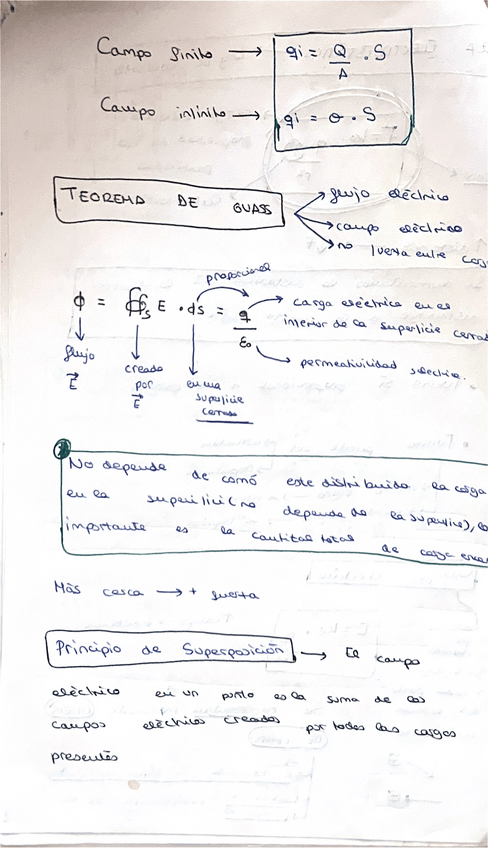 Campo finito → qi = Q/A . S
Campo infinito → qi = σ . S
TEOREMA DE GUASS
flujo eléctrico
campo eléctrico
no fuerza entre
proporcional
ϕ = ∯s E . ds = q/ε0
carga eléctrica en el
interior de la superficie cerrada
permeativilidad
flujo E⃗
creado por E⃗
en una superficie cerrada
No depende de comó este distribuido la carga
en la superficie (no depende de la superficie), lo
importante es la cantitad total de carga
Más cerca → + fuerza
Principio de Superposición → El campo
eléctrico en un punto es la suma de los
campos eléctricos creados por todas las cargas
presentes